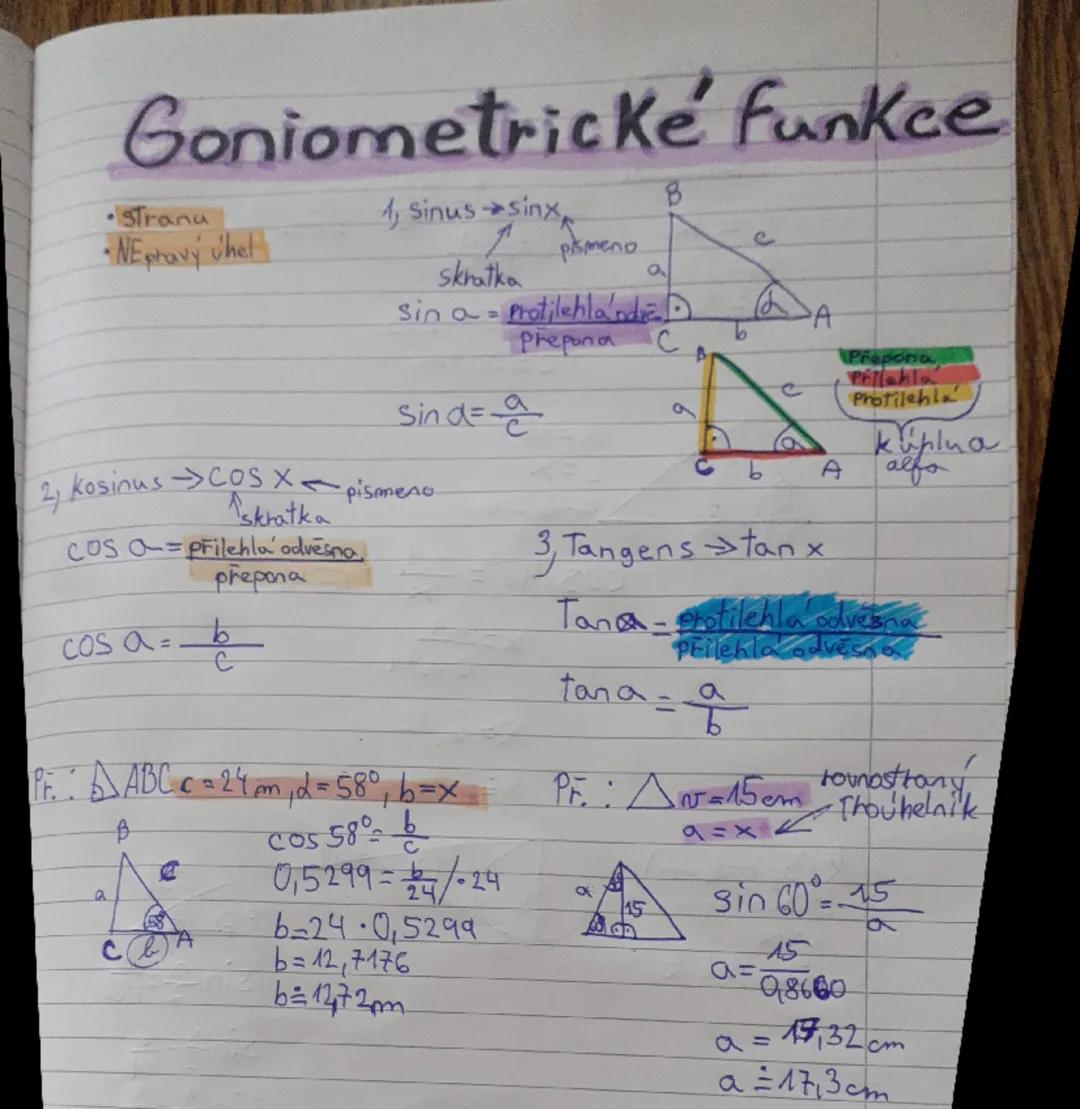 Goniometrické funkce
• stranu
• NEpravý úhel
1, sinus → sin x
písmeno
skratka
sin α = protilehlá odvě.
přepona
sin α = a
c
B
a
c
α
C
b
A
B
a
c
α
C
b
A
Přepona
Přilehlá
Protilehlá
k úhlu α
alfa
2, Kosinus → cos x ← písmeno
skratka
cos α = přilehlá odvěsna
přepona
cos α = b
c
3, Tangens → tan x
Tan α = protilehlá odvěsna
přilehlá odvěsna
tan α = a
b
Př.: △ ABC c = 24 m, α = 58°, b = x
B
a
c
58°
C
b
A
cos 58° = b
c
0,5299 = b/24 /·24
b = 24 · 0,5299
b = 12,7176
b ≐ 12,72 m
Př.: △ v = 15 cm
a = x
rovnostraný
Troúhelník
a
15
sin 60° = 15
a
a = 15
0,8660
a = 17,32 cm
a ≐ 17,3 cm